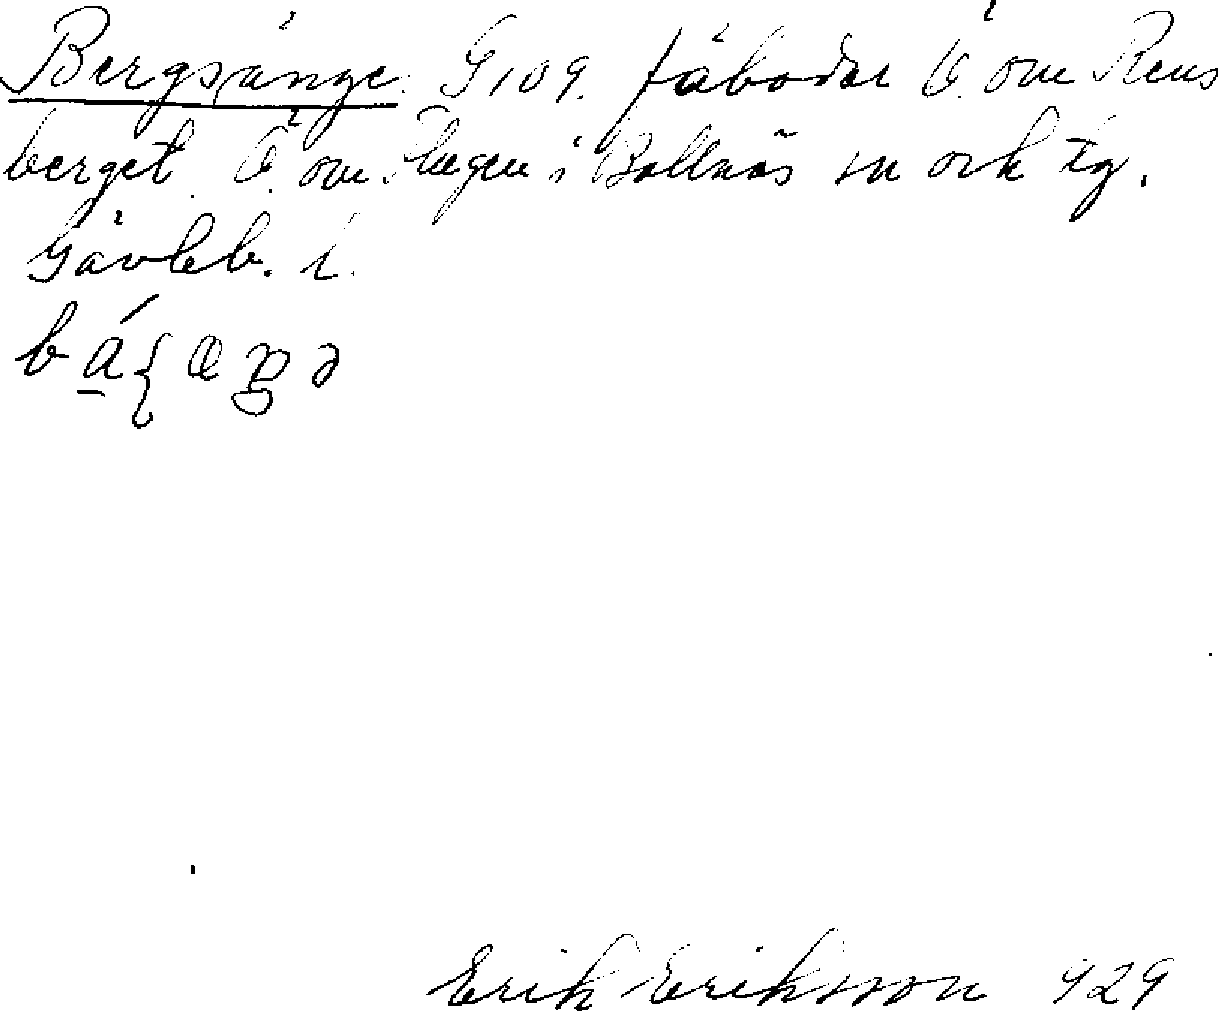 Bergsänge. G 109. fäbodar Ö. om Rens
berget. Ö. om Flugen i Bollnäs sn och tg.
Gävleb. l.
Erik Eriksson 929